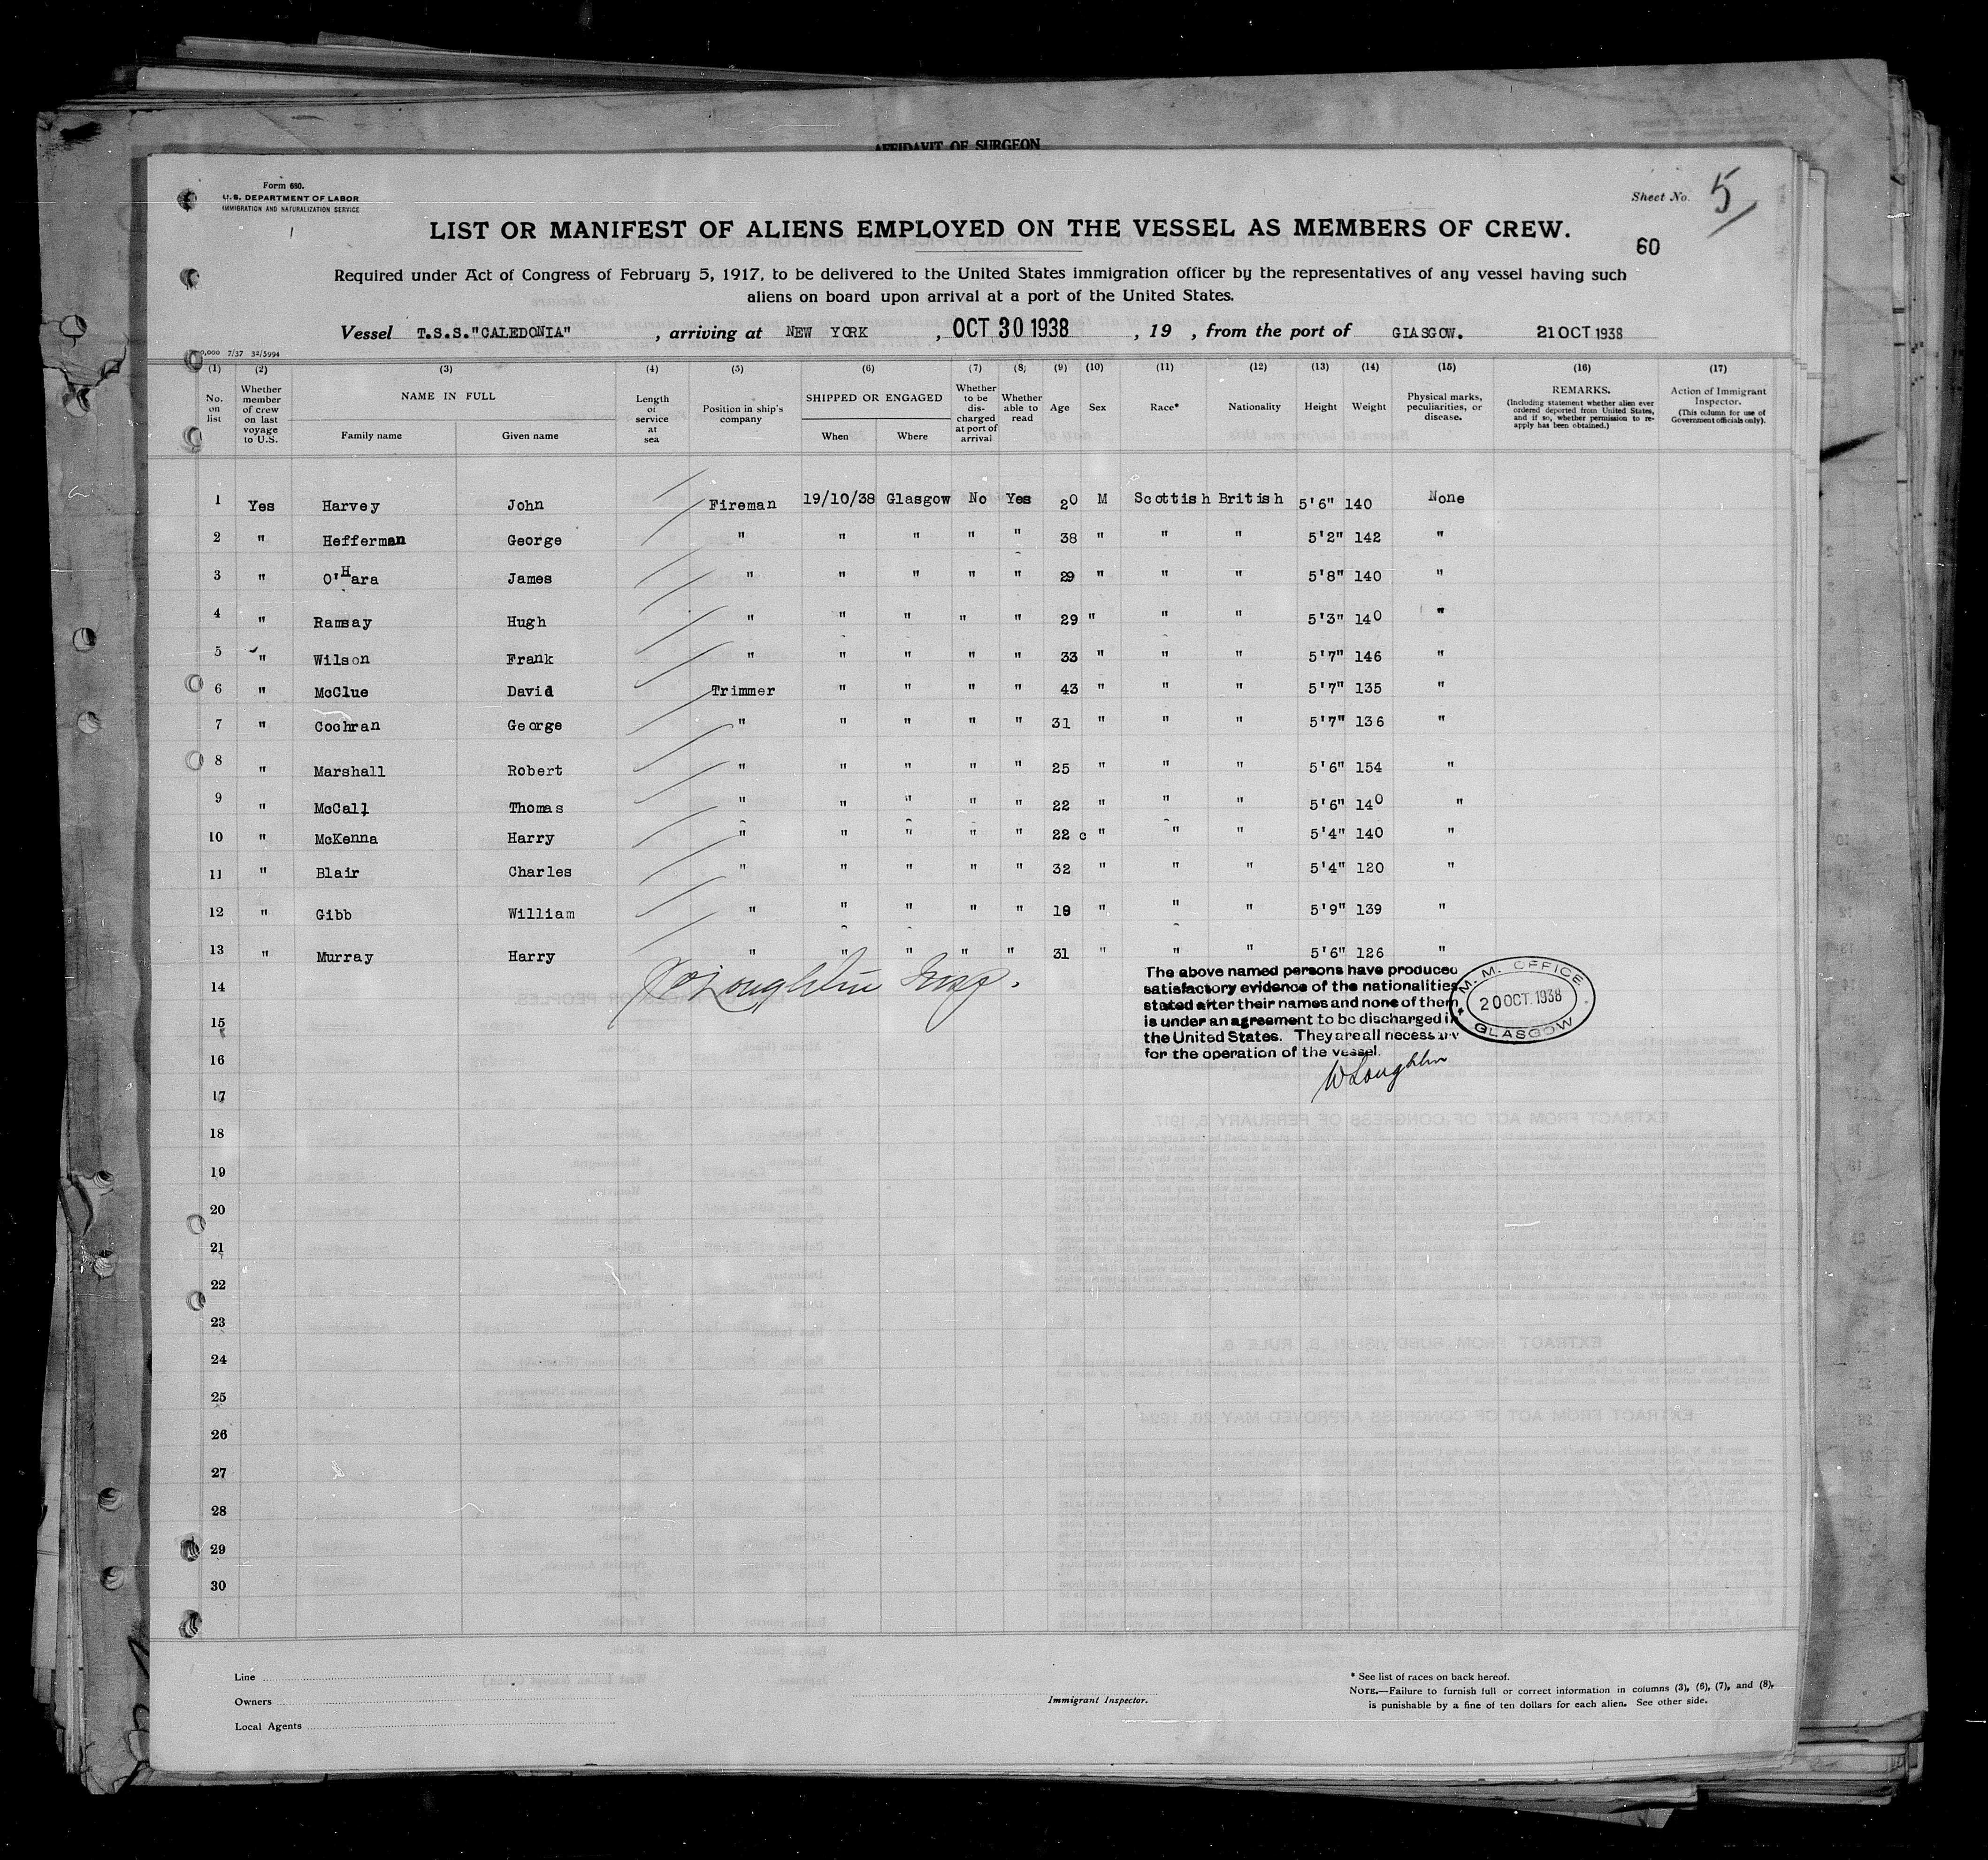 AFFIDAVIT OF SURGEON
Form 680.
U.S. DEPARTMENT OF LABOR
IMMIGRATION AND NATURALIZATION SERVICE
Sheet No. 5
LIST OR MANIFEST OF ALIENS EMPLOYED ON THE VESSEL AS MEMBERS OF CREW.
60
Required under Act of Congress of February 5, 1917, to be delivered to the United States immigration officer by the representatives of any vessel having such
aliens on board upon arrival at a port of the United States.
Vessel T.S.S."CALEDONIA" , arriving at NEW YORK , OCT 30 1938 , 19 , from the port of GLASGOW. 21 OCT 1938
7/37 32/5994
(1) (2) (3) (4) (5) (6) (7) (8) (9) (10) (11) (12) (13) (14) (15) (16) (17)
No. on list
Whether member of crew on last voyage to U.S.
NAME IN FULL
Family name Given name
Length of service at sea
Position in ship's company
SHIPPED OR ENGAGED
When Where
Whether to be discharged at port of arrival
Whether able to read
Age
Sex
Race*
Nationality
Height
Weight
Physical marks, peculiarities, or disease.
REMARKS.
(Including statement whether alien ever ordered deported from United States, and if so, whether permission to reapply has been obtained.)
Action of Immigrant Inspector.
(This column for use of Government officials only).
1 Yes Harvey John Fireman 19/10/38 Glasgow No Yes 20 M Scottish British 5'6" 140 None
2 " Hefferman George " " " " " 38 " " " 5'2" 142 "
3 " O'Hara James " " " " " 29 " " " 5'8" 140 "
4 " Ramsay Hugh " " " " " 29 " " " 5'3" 140 "
5 " Wilson Frank " " " " " 33 " " " 5'7" 146 "
6 " McClue David Trimmer " " " " 43 " " " 5'7" 135 "
7 " Cochran George " " " " " 31 " " " 5'7" 136 "
8 " Marshall Robert " " " " " 25 " " " 5'6" 154 "
9 " McCall Thomas " " " " " 22 " " " 5'6" 140 "
10 " McKenna Harry " " " " " 22 c " " " 5'4" 140 "
11 " Blair Charles " " " " " 32 " " " 5'4" 120 "
12 " Gibb William " " " " " 19 " " " 5'9" 139 "
13 " Murray Harry " " " " " 31 " " " 5'6" 126 "
14
15
16
17
18
19
20
21
22
23
24
25
26
27
28
29
30
The above named persons have produced
satisfactory evidence of the nationalities
stated after their names and none of them
is under an agreement to be discharged in
the United States. They are all necessary
for the operation of the vessel.
M.M. OFFICE
20 OCT. 1938
GLASGOW
Line
Owners
Local Agents
Immigrant Inspector.
* See list of races on back hereof.
NOTE.—Failure to furnish full or correct information in columns (3), (6), (7), and (8),
is punishable by a fine of ten dollars for each alien. See other side.